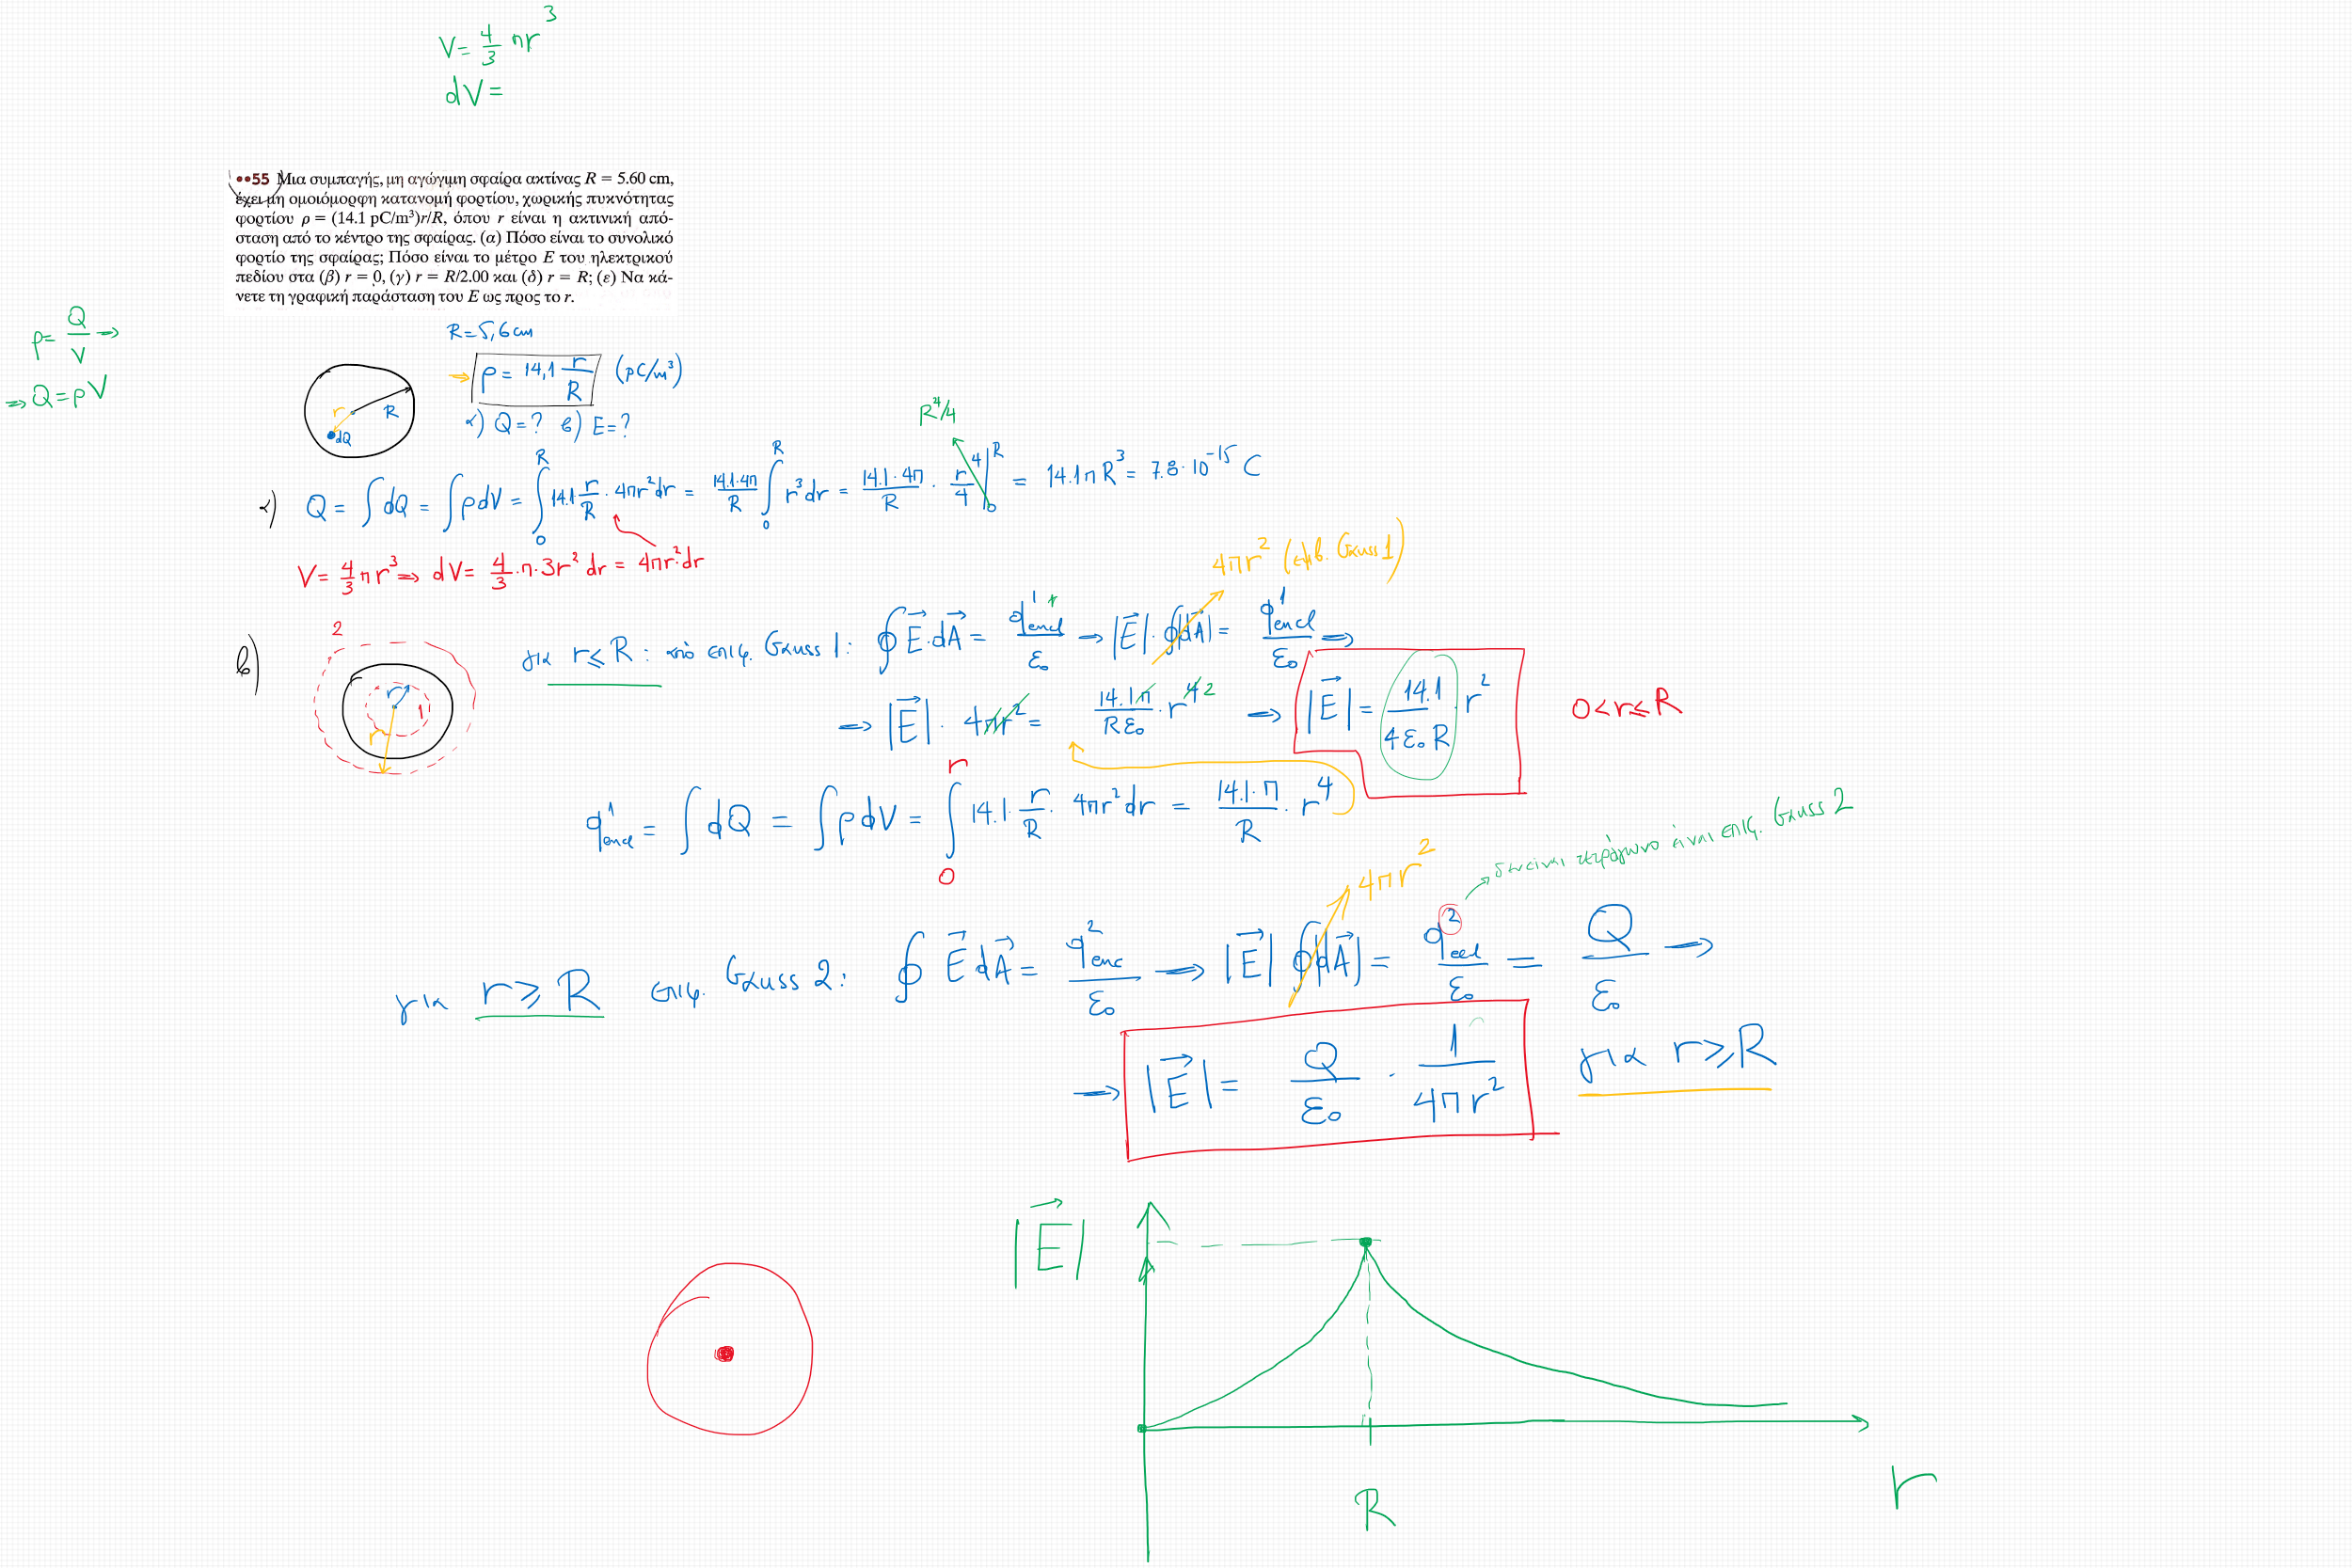 V = 4/3 πr³
dV =
••55 Μια συμπαγής, μη αγώγιμη σφαίρα ακτίνας R = 5.60 cm,
έχει μη ομοιόμορφη κατανομή φορτίου, χωρικής πυκνότητας
φορτίου ρ = (14.1 pC/m³)r/R, όπου r είναι η ακτινική από-
σταση από το κέντρο της σφαίρας. (α) Πόσο είναι το συνολικό
φορτίο της σφαίρας; Πόσο είναι το μέτρο E του ηλεκτρικού
πεδίου στα (β) r = 0, (γ) r = R/2.00 και (δ) r = R; (ε) Να κά-
νετε τη γραφική παράσταση του E ως προς το r.
ρ = Q/V ⇒
⇒ Q = ρV
R = 5,6 cm
⇒ ρ = 14,1 r/R (pC/m³)
α) Q = ? β) E = ?
r R dQ
R⁴/4
α) Q = ∫dQ = ∫ρdV = ∫₀ᴿ 14.1 r/R · 4πr²dr = 14.1·4π/R ∫₀ᴿ r³dr = 14.1·4π/R · r⁴/4 |₀ᴿ = 14.1πR³ = 7.8·10⁻¹⁵ C
V = 4/3 πr³ ⇒ dV = 4/3·π·3r²dr = 4πr²dr
4πr² (εμβ. Gauss 1)
β) 2 r 1 r
για r ≤ R: από επιφ. Gauss 1: ∮E⃗·dA⃗ = q¹encl/ε₀ → |E⃗|·∮|dA⃗| = q¹encl/ε₀ ⇒
⇒ |E⃗|·4πr² = 14.1π/Rε₀ · r⁴ ² ⇒ |E⃗| = 14.1/4ε₀R · r² 0<r≤R
q¹encl = ∫dQ = ∫ρdV = ∫₀ʳ 14.1·r/R·4πr²dr = 14.1·π/R · r⁴
δεν είναι τετράγωνο είναι επιφ. Gauss 2
4πr²
για r ≥ R επιφ. Gauss 2: ∮E⃗dA⃗ = q²enc/ε₀ → |E⃗|∮|dA⃗| = q²encl/ε₀ = Q/ε₀ →
→ |E⃗| = Q/ε₀ · 1/4πr² για r ≥ R
|E⃗|
R
r